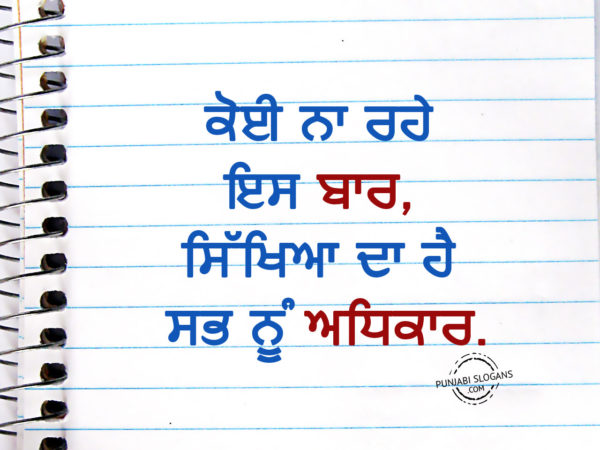 ਕੋਈ ਨਾ ਰਹੇ
ਇਸ ਬਾਰ,
ਸਿੱਖਿਆ ਦਾ ਹੈ
ਸਭ ਨੂੰ ਅਧਿਕਾਰ.
PUNJABI SLOGANS
.COM